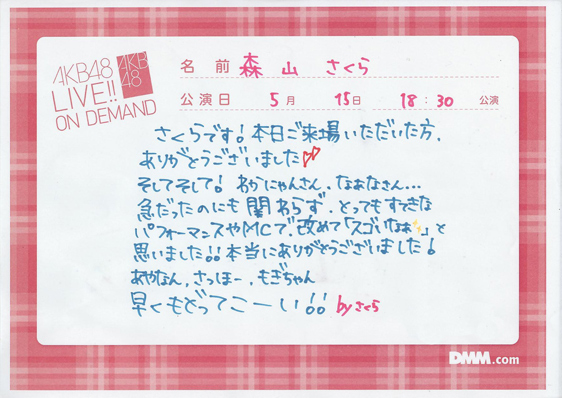 AKB48
LIVE!!
ON DEMAND
AKB
48
名前 森山 さくら
公演日 5月 15日 18:30 公演
さくらです!本日ご来場いただいた方、
ありがとうございました
そしてそして!わかにゃんさん、なぁなさん...
急だったのにも関わらず、とってもすてきな
パフォーマンスやMCで、改めて「スゴいなぁ✨」と
思いました!!本当にありがとうございました!
あやなん、さっほー、もぎちゃん
早くもどってこーい!! byさくら
DMM.com